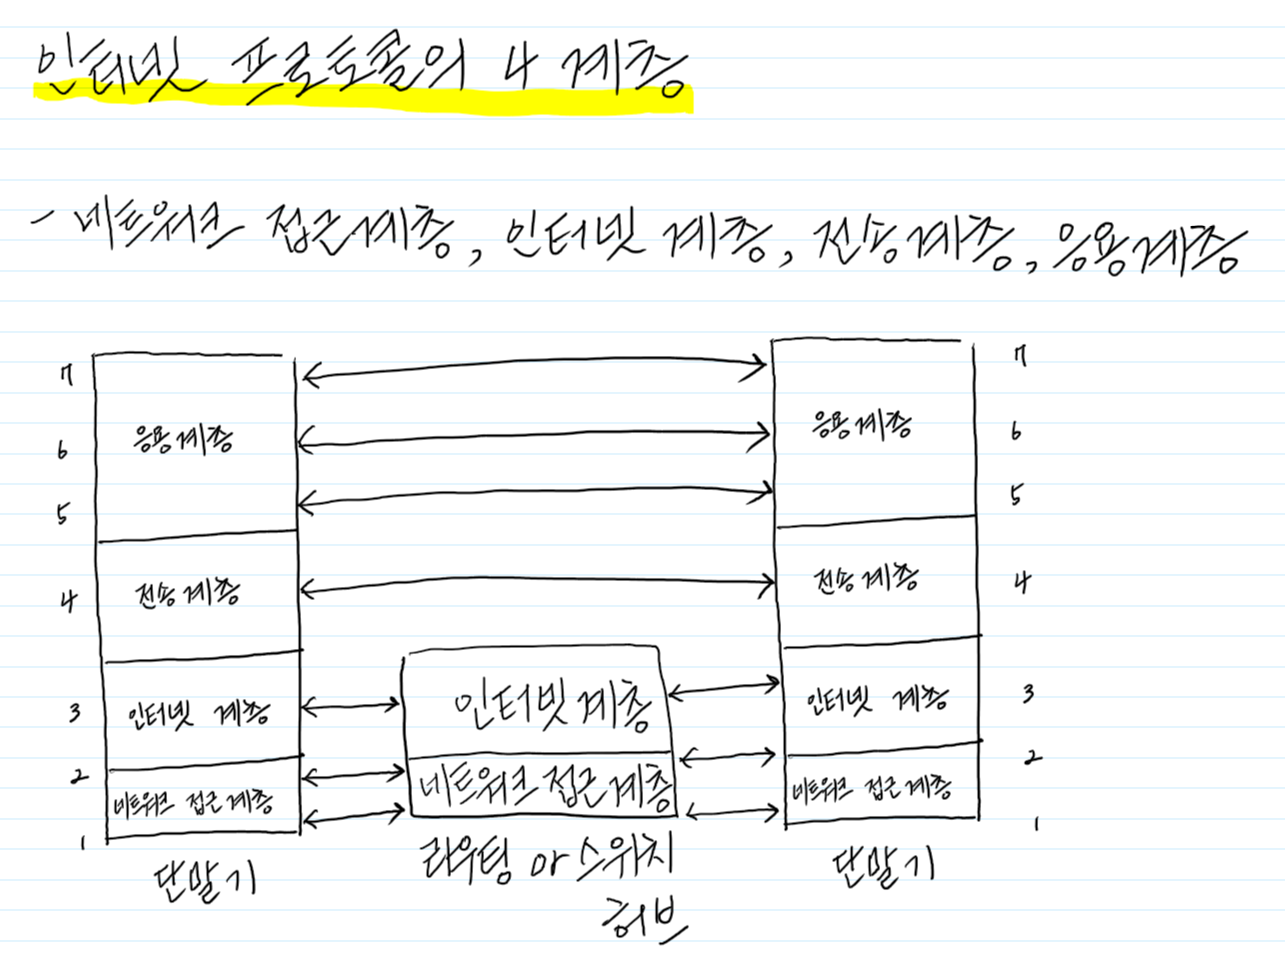 인터넷 프로토콜의 4 계층
- 네트워크 접근계층, 인터넷 계층, 전송계층, 응용계층
7
응용계층
6
5
4
전송계층
3
인터넷 계층
2
네트워크 접근계층
1
단말기
인터넷계층
네트워크 접근계층
라우팅 or 스위치
허브
7
응용계층
6
5
전송계층
4
인터넷 계층
3
2
네트워크 접근계층
1
단말기